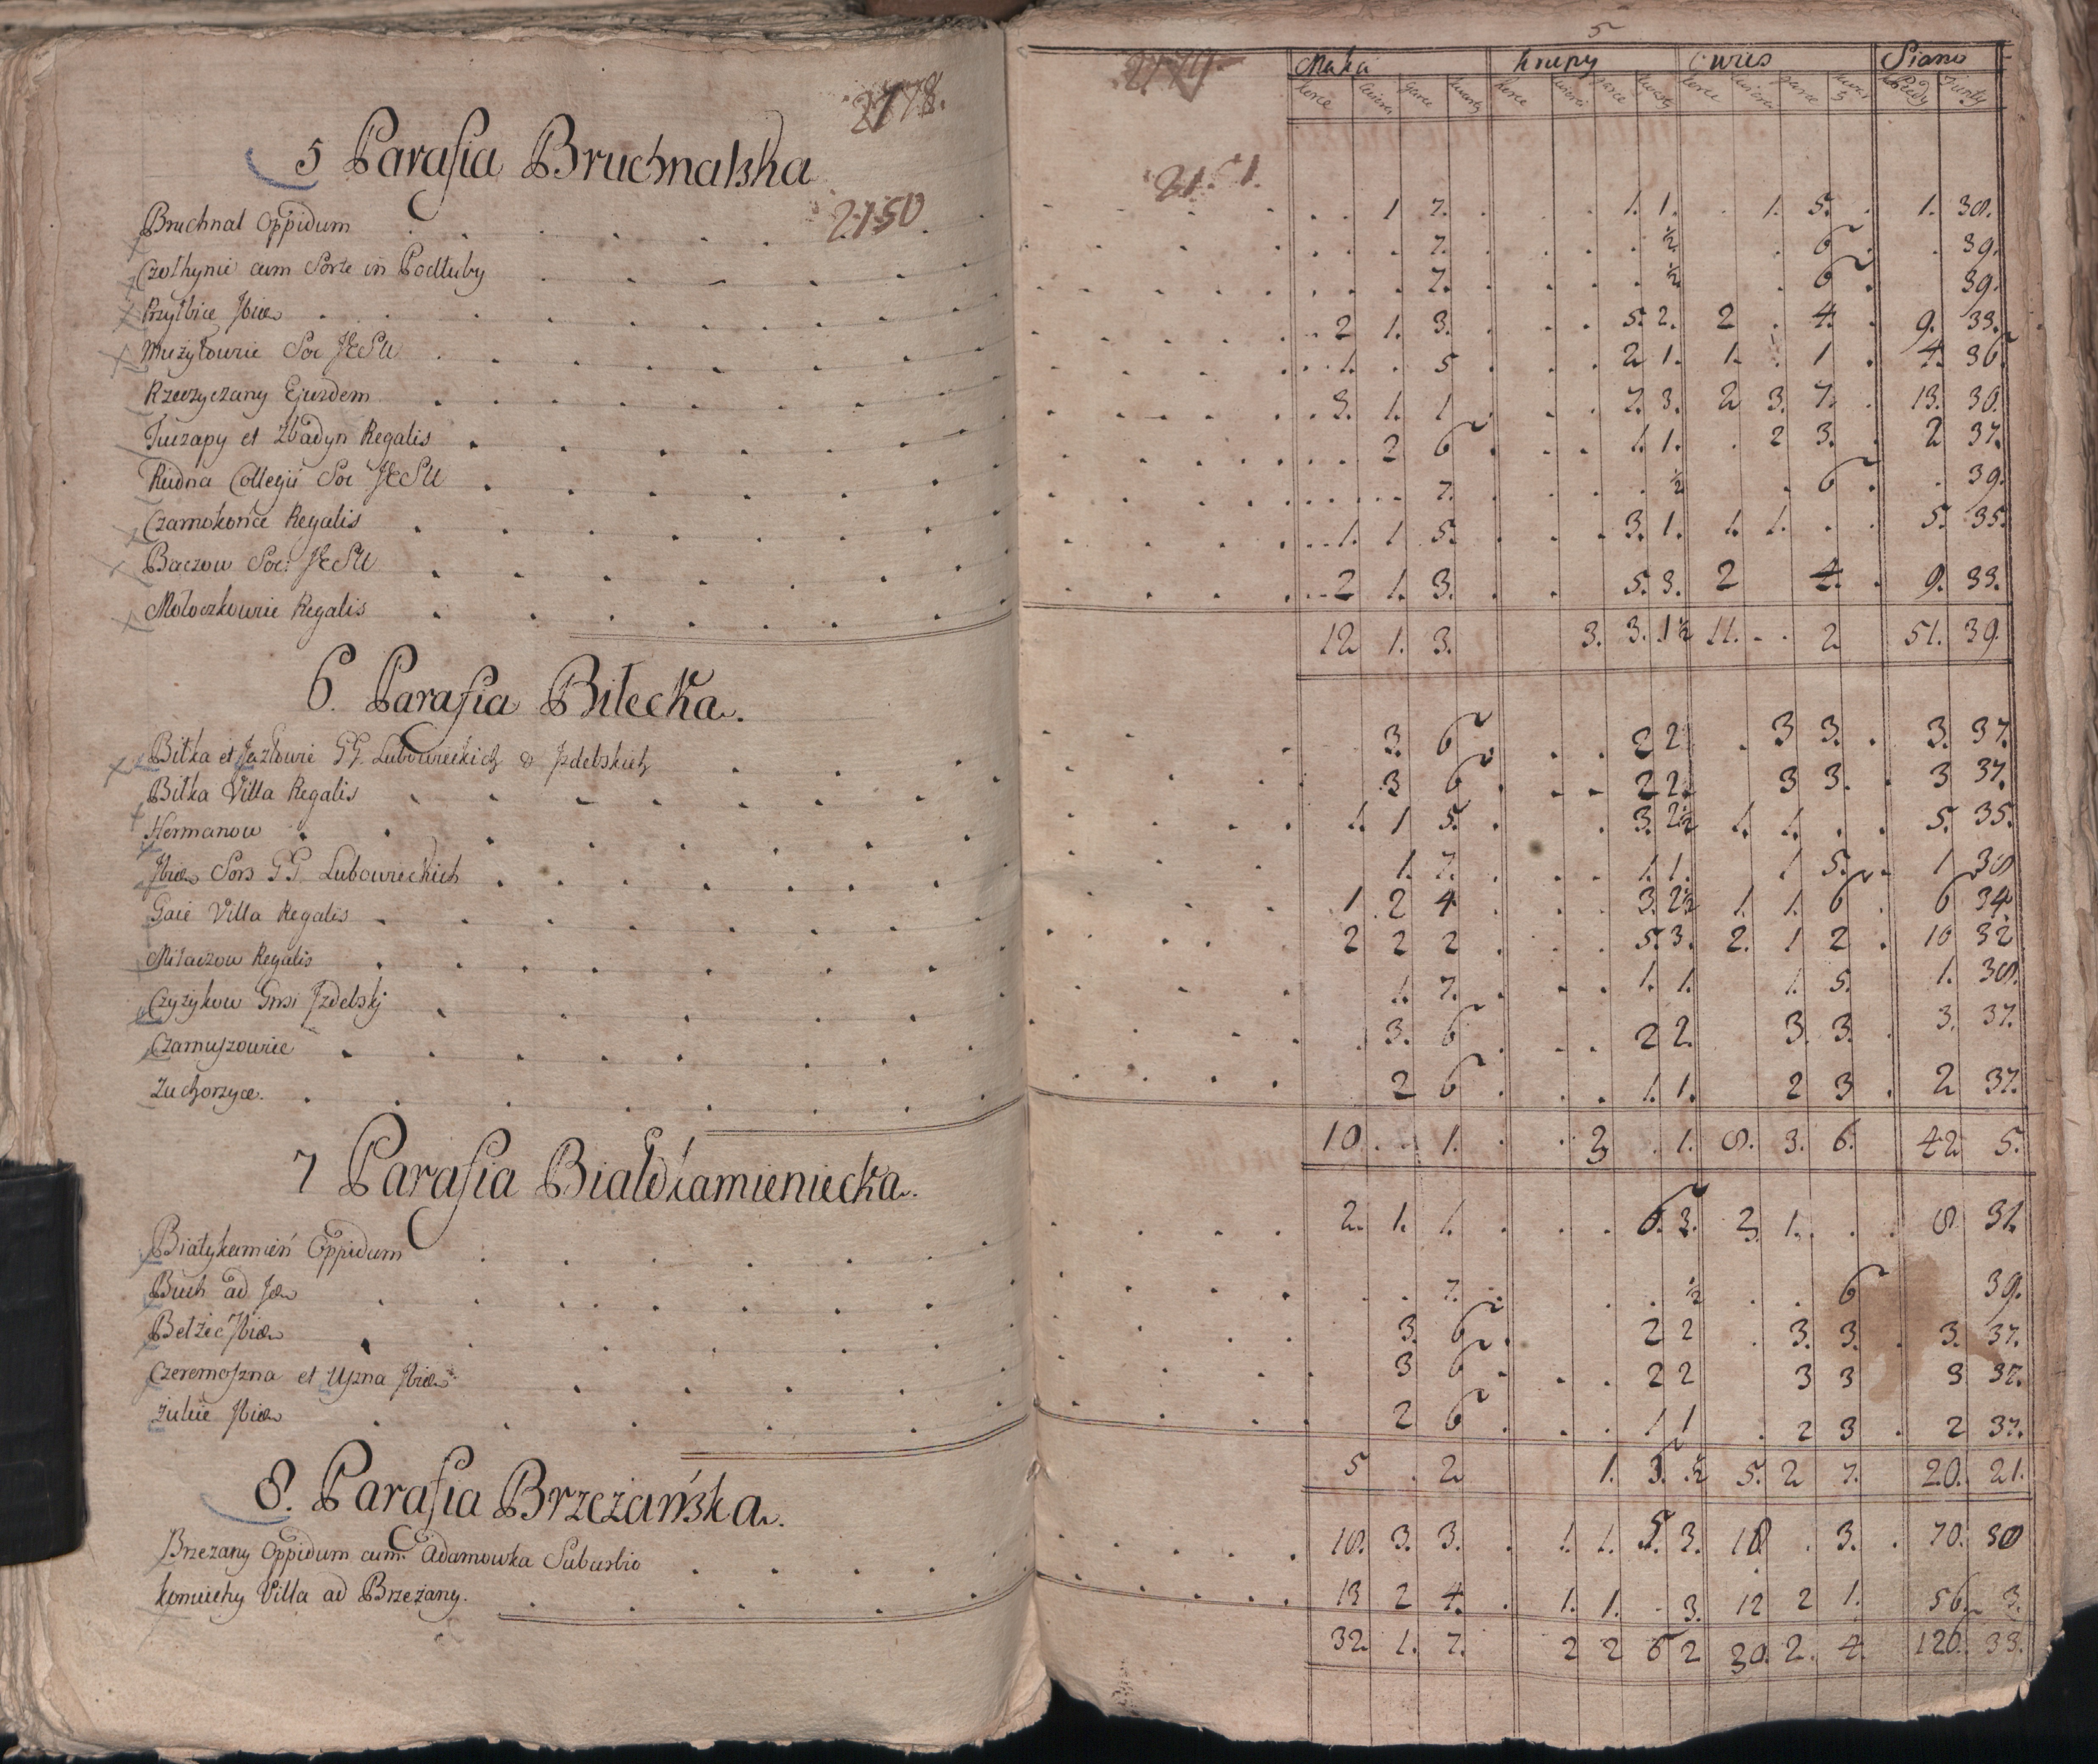 2778.
5 Parafia Bruchnalska
2150
Bruchnal Oppidum
Czolhynie cum Sorte in Podluby
Przylbice Ibid
Mużyłowie Soc JESU
Rzeczyczany Ejusdem
Tuczapy et Zbadyn Regalis
Rudna Collegii Soc JESU
Czarnokońce Regalis
Baczow Soc: JESU
Mołoczkowie Regalis
6. Parafia Biłecka.
Biłka et Jazłowie GG. Lubowieckich & Izdebskich
Biłka Villa Regalis
Hermanow
Ibid Sors GG. Lubowieckich
Gaie Villa Regalis
Miłaczow Regalis
Czyżykow Gnsi Izdebskj
Czarnuszowie
Zuchorzyce.
7 Parafia Białokamieniecka.
Białykamień Oppidum
Buch ad
Bełżec Ibid
Czeremoszna et Uszna Ibid
Żulice Ibid
8. Parafia Brzeżańska.
Brzezany Oppidum cum Adamowka Suburbio
Komiuchy Villa ad Brzeżany.
5
Mąka krupy Owies Siano
korce garce kwarty korce garce kwarty korce garce Funty
2151.
1 7. 1. 1. 1. 5. 1. 38.
7. ½ 6 39.
7. ½ 6 39.
2 1. 3. 5. 2. 2 4. 9. 33.
1. 5 2 1. 1. 1 4. 36
3. 1. 1 7. 3. 2 3. 7. 13. 30.
2 6 1. 1. 2 3. 2 37.
7. ½ 6 39.
1. 1 5. 3. 1. 1. 1. 5. 35.
2 1. 3. 5. 3. 2 4. 9. 33.
12 1. 3. 3. 3. 1½ 11. 2 51. 39.
3. 6 2 2 3 3. 3. 37.
3 6 2 2. 3 3. 3 37.
1. 1 5. 3. 2½ 1. 1. 5. 35.
1. 7. 1. 1. 1 5. 1 38
1 2 4 3. 2½ 1. 1. 6 6 34
2 2 2 5. 3. 2. 1 2 10 32
1. 7. 1. 1. 1. 5. 1. 38.
3. 6 2 2. 3. 3. 3. 37.
2 6 1. 1. 2 3 2 37.
10. 1. 3 1. 8. 3. 6. 42 5.
2. 1. 1. 6. 3. 2. 1. 8 31.
7. ½ 6 39.
3. 6 2 2 3. 3. 3. 37.
3 6 2 2 3 3 3 37.
2 6 1 1 2 3 2 37.
5 2 1. 3. ½ 5. 2 7. 20. 21.
18. 3. 3. 1. 1. 5. 3. 18 3. 70. 30
13 2 4. 1. 1. 3. 12 2 1. 56. 3.
32. 1. 7. 2 2 6 2 30. 2. 4. 126. 33.